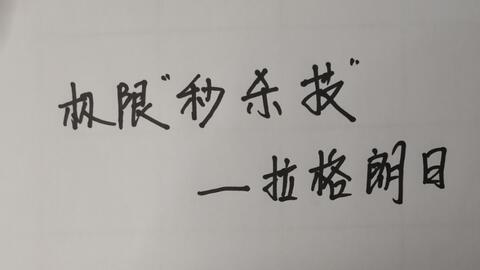 极限"秒杀技"
—拉格朗日